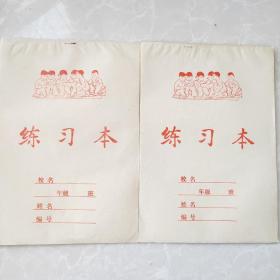 练习本
校名
年级 班
姓名
编号
练习本
校名
年级 班
姓名
编号